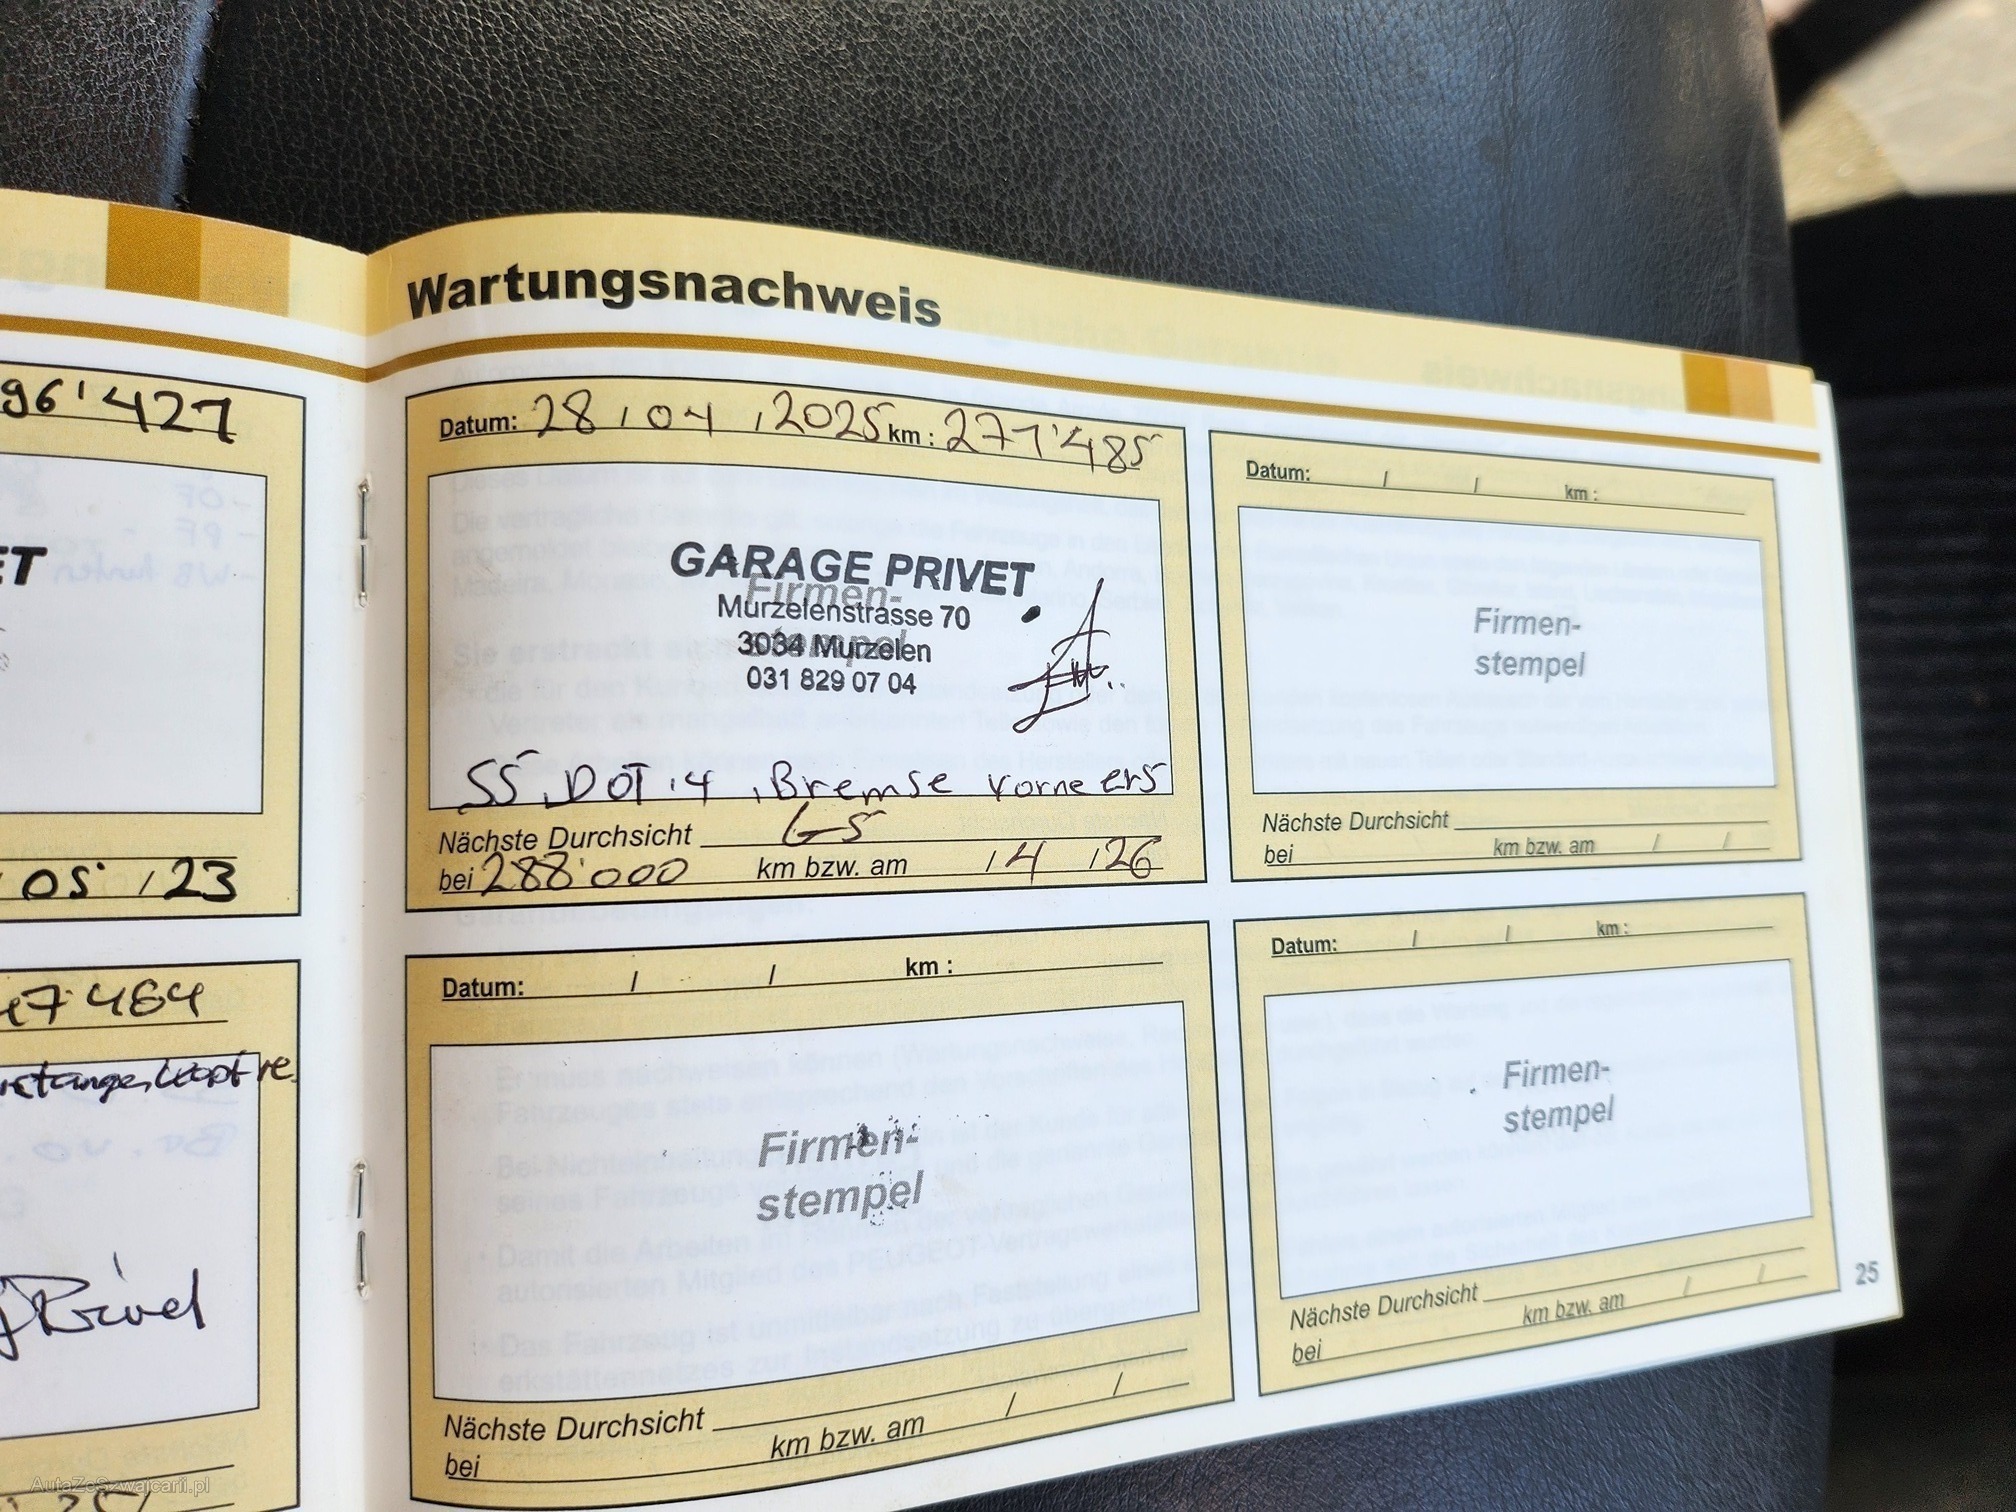 Wartungsnachweis
96'427
ET
05 / 23
47'464
Privet
Datum: 28 / 04 / 2025 km : 277'485
GARAGE PRIVET
Firmen-
Murzelenstrasse 70
stempel
3034 Murzelen
031 829 07 04
SS, DOT 4, Bremse vorne ers
Nächste Durchsicht GS
bei 288'000 km bzw. am / 4 / 26
Datum: / / km :
Firmen-
stempel
Nächste Durchsicht
bei km bzw. am / /
Datum: / / km :
Firmen-
stempel
Nächste Durchsicht
bei km bzw. am / /
Datum: / / km :
Firmen-
stempel
Nächste Durchsicht
bei km bzw. am / /
25
AutaZeSzwajcarii.pl